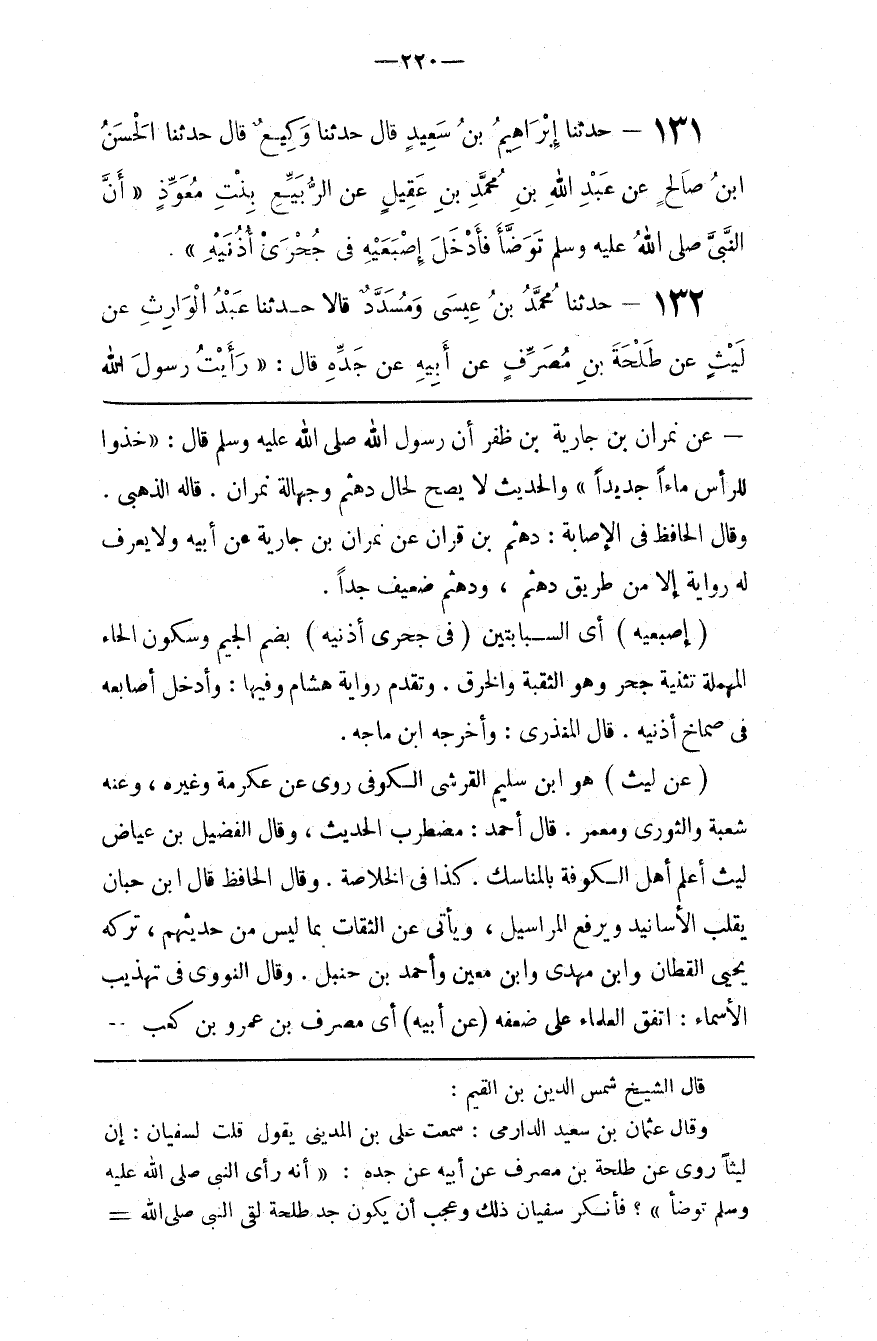 —٢٢٠—
١٣١ — حدثنا إِبْرَاهِيمُ بنُ سَعِيدٍ قال حدثنا وَكِيعٌ قال حدثنا الْحَسَنُ
ابنُ صَالحٍ عن عَبْدِ اللهِ بنِ مُحمَّدِ بنِ عَقِيلٍ عن الرُّبَيِّعِ بِنْتِ مُعَوِّذٍ « أَنَّ
النَّبيَّ صلى اللهُ عليه وسلم تَوَضَّأَ فأَدْخَلَ إِصْبَعَيْهِ فى جُحْرَىْ أُذُنَيْهِ » .
١٣٢ — حدثنا مُحمَّدُ بنُ عِيسَى وَمُسَدَّدٌ قالا حدثنا عَبْدُ الْوَارِثِ عن
لَيْثٍ عن طَلْحَةَ بنِ مُصَرِّفٍ عن أَبِيهِ عن جَدِّهِ قال : « رَأَيْتُ رسولَ الله
— عن نمران بن جارية بن ظفر أن رسول الله صلى الله عليه وسلم قال : «خذوا
للرأس ماءاً جديداً » والحديث لا يصح لحال دهثم وجهالة نمران . قاله الذهبى .
وقال الحافظ فى الإصابة : دهثم بن قران عن نمران بن جارية عن أبيه ولا يعرف
له رواية إلا من طريق دهثم ، ودهثم ضعيف جداً .
( إصبعيه ) أى السبابتين ( فى جحرى أذنيه ) بضم الجيم وسكون الحاء
المهملة تثنية جحر وهو الثقبة والخرق . وتقدم رواية هشام وفيها : وأدخل أصابعه
فى صماخ أذنيه . قال المنذرى : وأخرجه ابن ماجه .
( عن ليث ) هو ابن سليم القرشى الكوفى روى عن عكرمة وغيره ، وعنه
شعبة والثورى ومعمر . قال أحمد : مضطرب الحديث ، وقال الفضيل بن عياض
ليث أعلم أهل الكوفة بالمناسك . كذا فى الخلاصة . وقال الحافظ قال ابن حبان
يقلب الأسانيد ويرفع المراسيل ، ويأتى عن الثقات بما ليس من حديثهم ، تركه
يحيى القطان وابن مهدى وابن معين وأحمد بن حنبل . وقال النووى فى تهذيب
الأسماء : اتفق العلماء على ضعفه (عن أبيه) أى مصرف بن عمرو بن كعب --
قال الشيخ شمس الدين بن القيم :
وقال عثمان بن سعيد الدارمى : سمعت على بن المدينى يقول قلت لسفيان : إن
ليثاً روى عن طلحة بن مصرف عن أبيه عن جده : « أنه رأى النبى صلى الله عليه
وسلم توضأ » ؟ فأنكر سفيان ذلك وعجب أن يكون جد طلحة لقى النبى صلى الله =